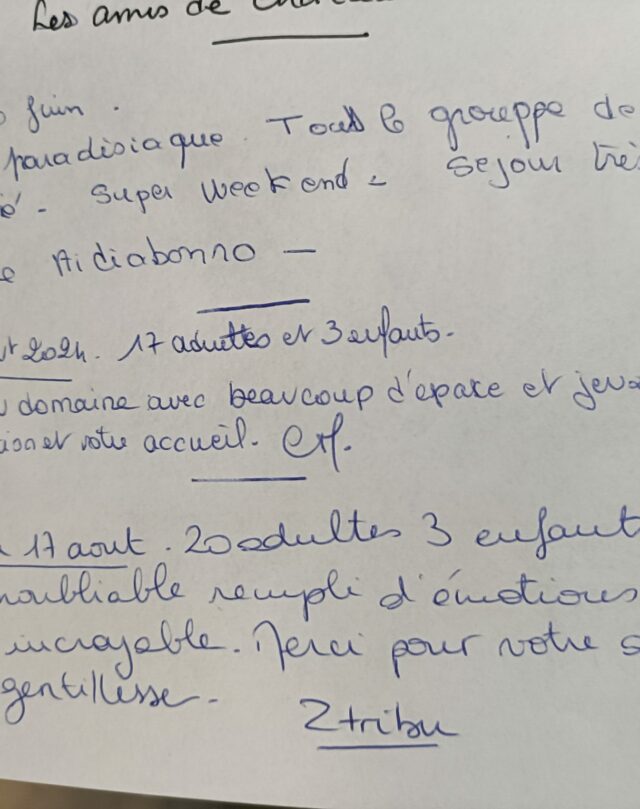 Les amis de
Juin.
paradisiaque. Tout le grouppe de
Super Weekend - Sejour très
Aidiabonno -
2024. 17 adultes et 3 enfants.
domaine avec beaucoup d'epace et jeux
et votre accueil.
17 aout. 20 adultes 3 enfant
noubliable rempli d'émotions
incroyable. Merci pour votre
gentillesse.
Z tribu